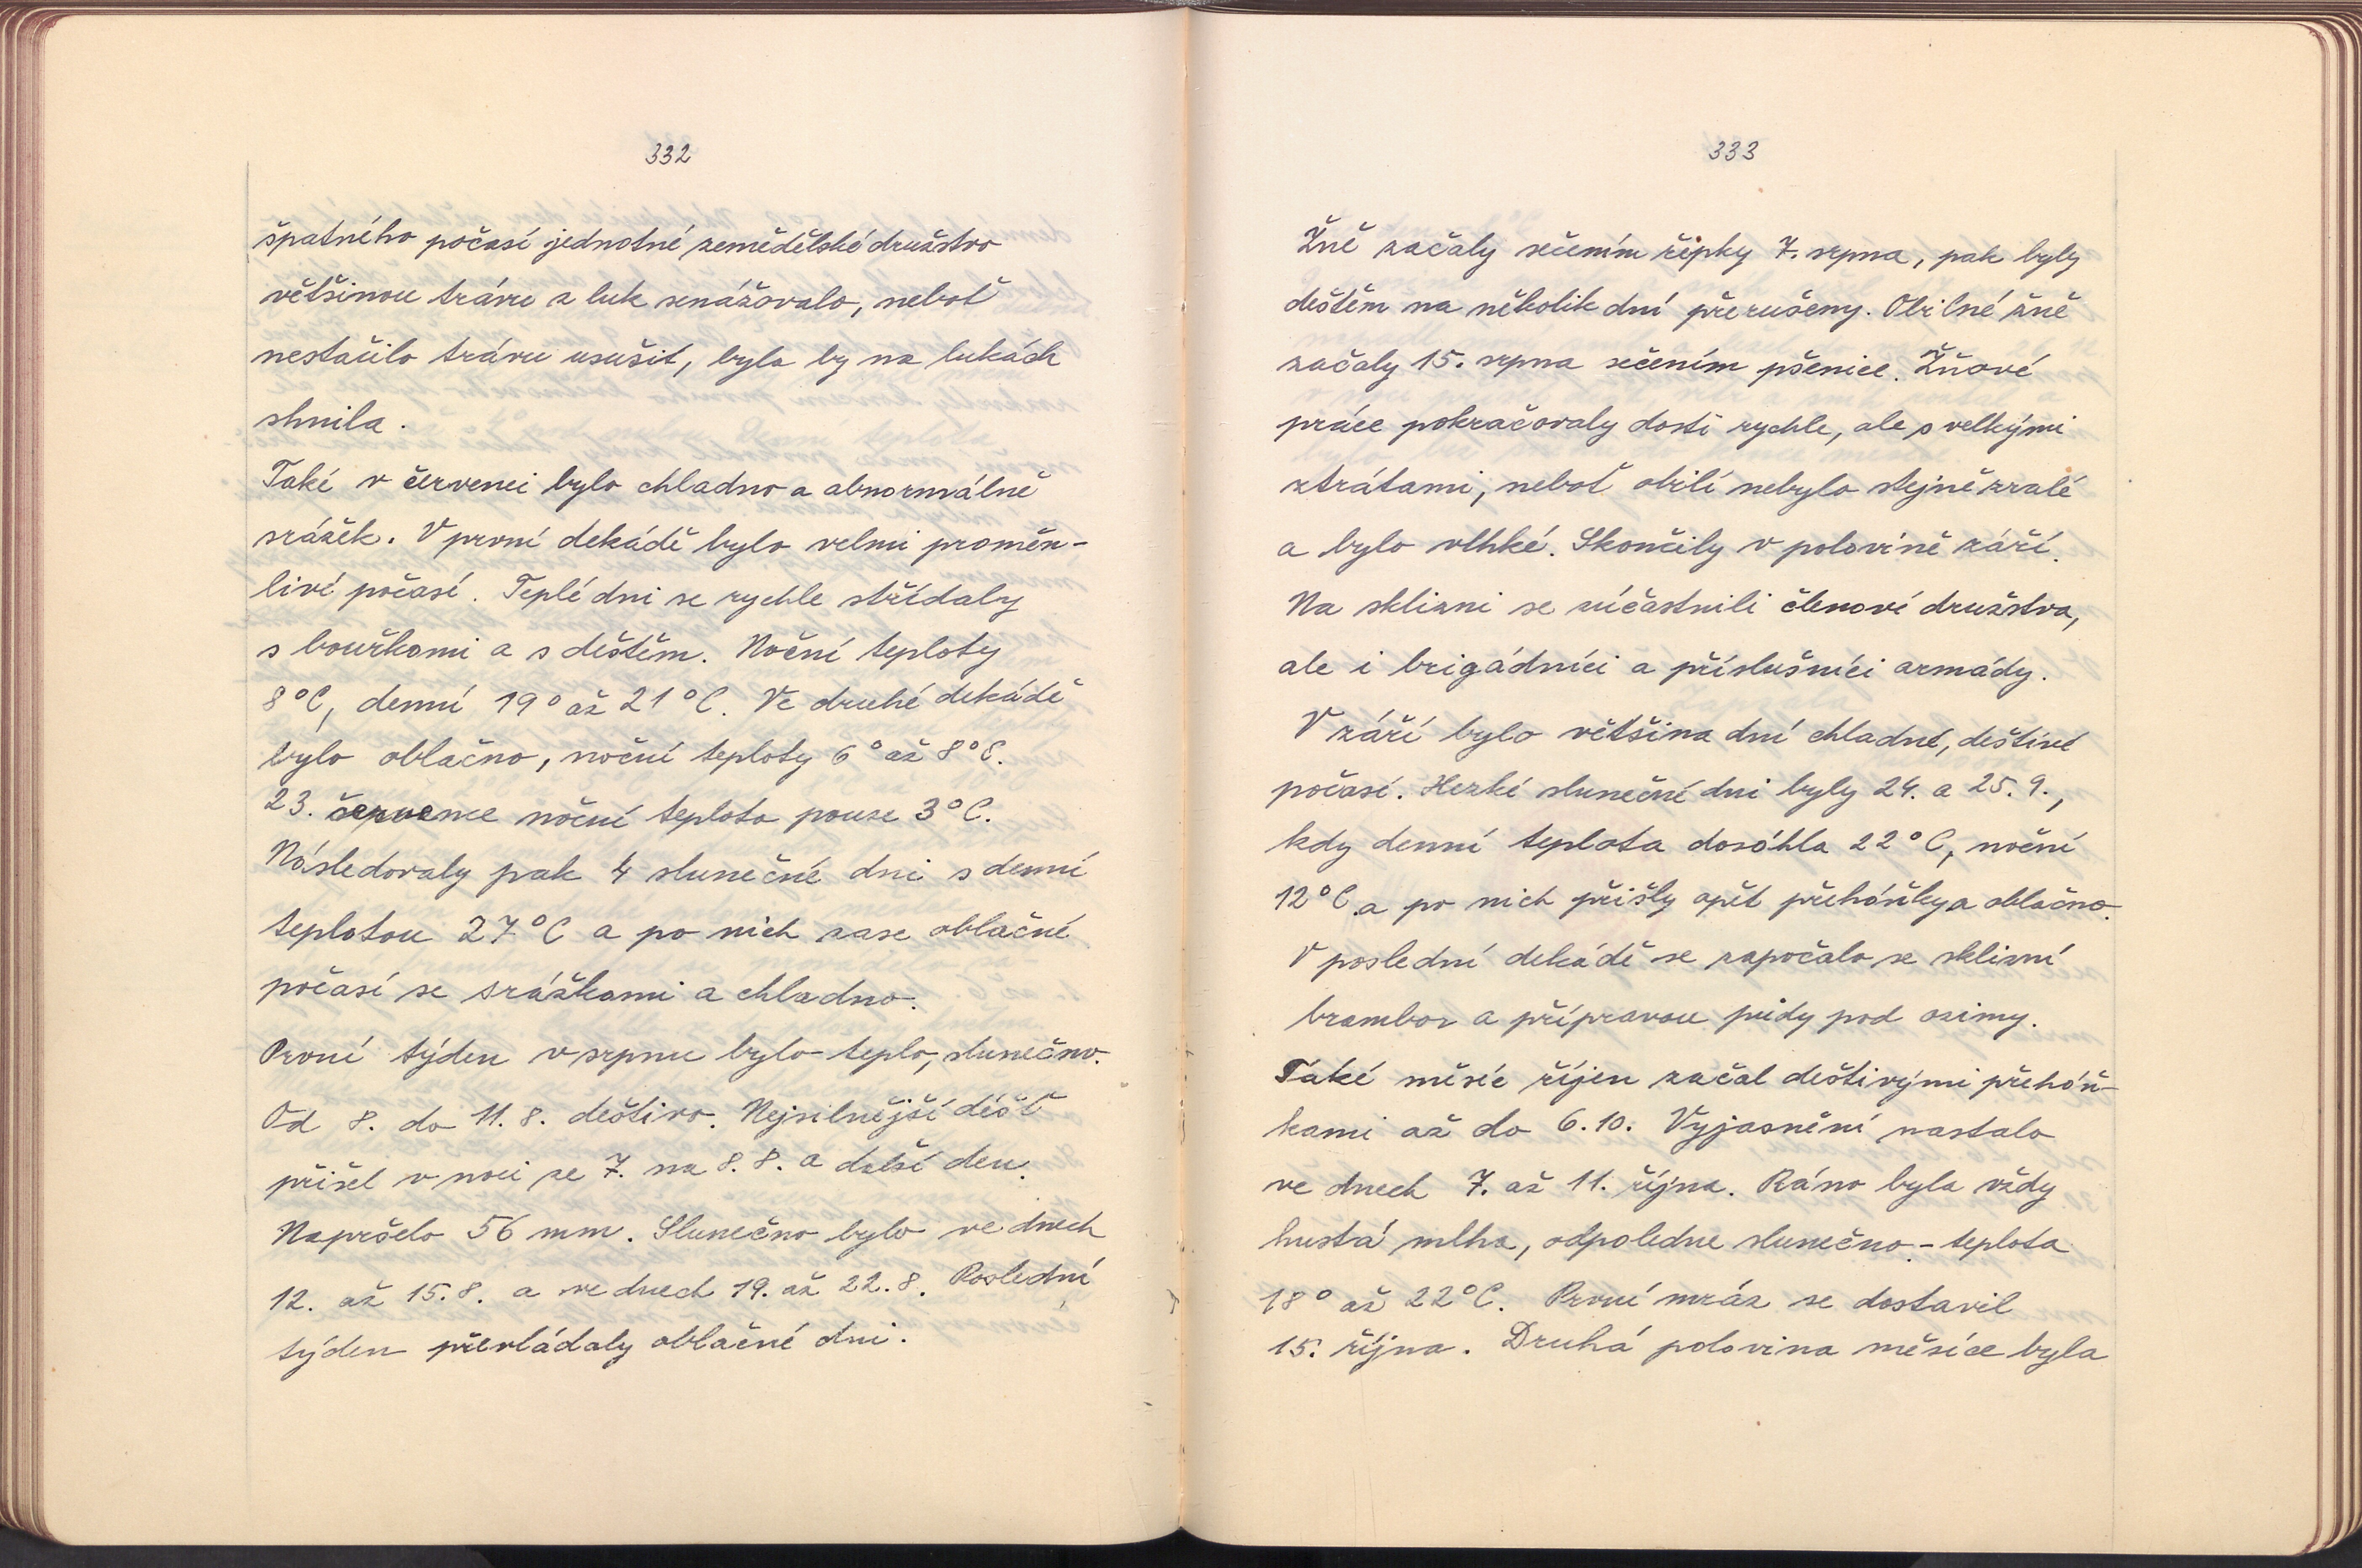 332
špatného počasí jednotné zemědělské družstvo
většinou trávu z luk senážovalo, neboť
nestačilo trávu usušit, byla by na lukách
shnila.
Také v červenci bylo chladno a abnormálně
srážek. V první dekádě bylo velmi proměn-
livé počasí. Teplé dni se rychle střídaly
s bouřkami a s deštěm. Noční teploty
8°C, denní 19° až 21°C. Ve druhé dekádě
bylo oblačno, noční teploty 6° až 8°C.
23. července noční teplota pouze 3°C.
Následovaly pak 4 slunečné dni s denní
teplotou 27°C a po nich zase oblačné
počasí se srážkami a chladno.
První týden v srpnu bylo teplo, slunečno.
Od 8. do 11. 8. deštivo. Nejsilnější déšť
přišel v noci ze 7. na 8. 8. a další den.
Napršelo 56 mm. Slunečno bylo ve dnech
12. až 15. 8. a ve dnech 19. až 22. 8. Poslední
týden převládaly oblačné dni.
333
Žně začaly sečením řepky 7. srpna, pak byly
deštěm na několik dní přerušeny. Obilné žně
začaly 15. srpna sečením pšenice. Žňové
práce pokračovaly dosti rychle, ale s velkými
ztrátami, neboť obilí nebylo stejně zralé
a bylo vlhké. Skončily v polovině září.
Na sklizni se zúčastnili členové družstva,
ale i brigádníci a příslušníci armády.
V září bylo většina dní chladné, deštivé
počasí. Hezké slunečné dni byly 24. a 25. 9.,
kdy denní teplota dosáhla 22°C, noční
12°C a po nich přišly opět přeháňky a oblačno.
V poslední dekádě se započalo se sklizní
brambor a přípravou půdy pod ozimy.
Také měsíc říjen začal deštivými přeháň-
kami až do 6. 10. Vyjasnění nastalo
ve dnech 7. až 11. října. Ráno byla vždy
hustá mlha, odpoledne slunečno - teplota
18° až 22°C. První mráz se dostavil
15. října. Druhá polovina měsíce byla